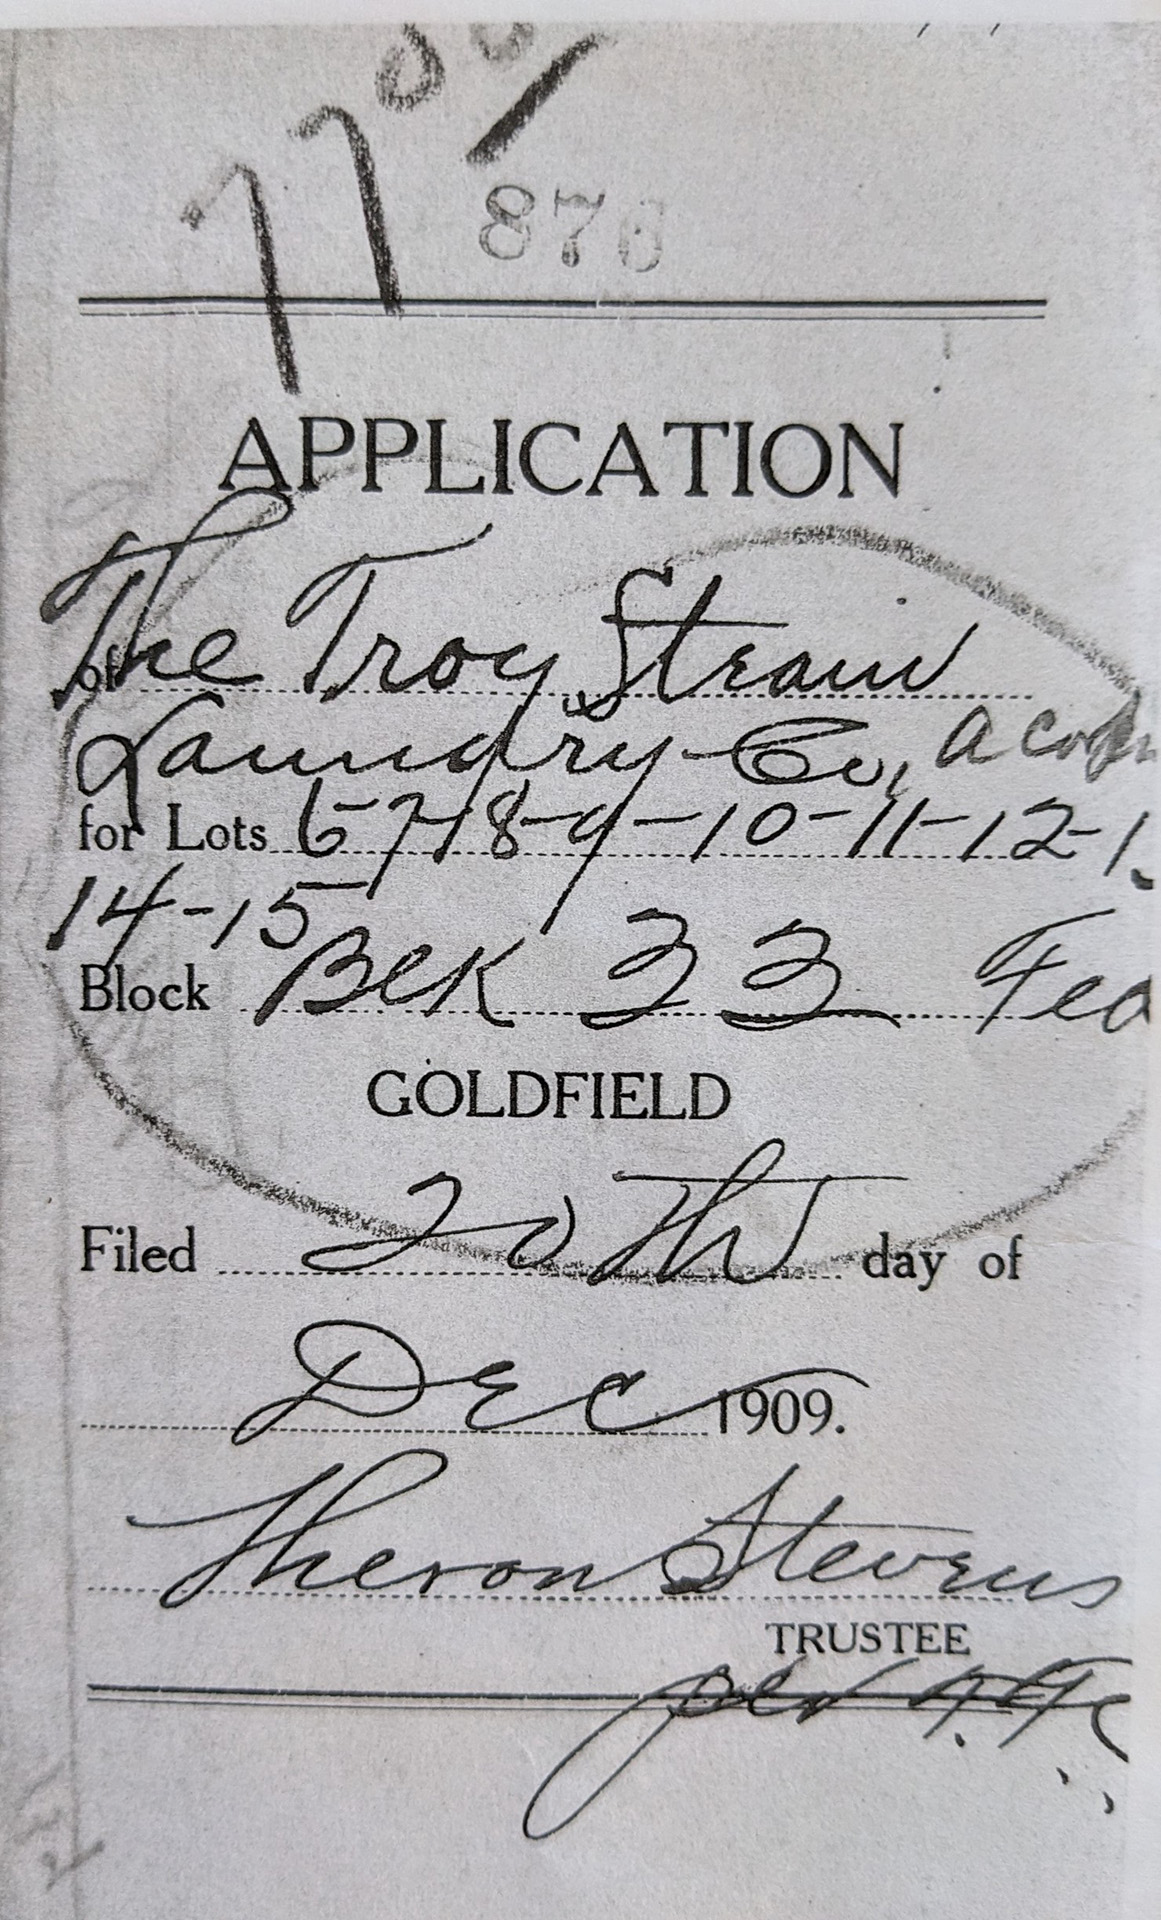 77 00/
876
APPLICATION
of The Troy Steam
Laundry Co, a corpn
for Lots 6-7-8-9-10-11-12-1
14-15
Block Blk 33 Fea
GOLDFIELD
Filed 20th day of
Dec 1909.
Theron Stevens
TRUSTEE
per